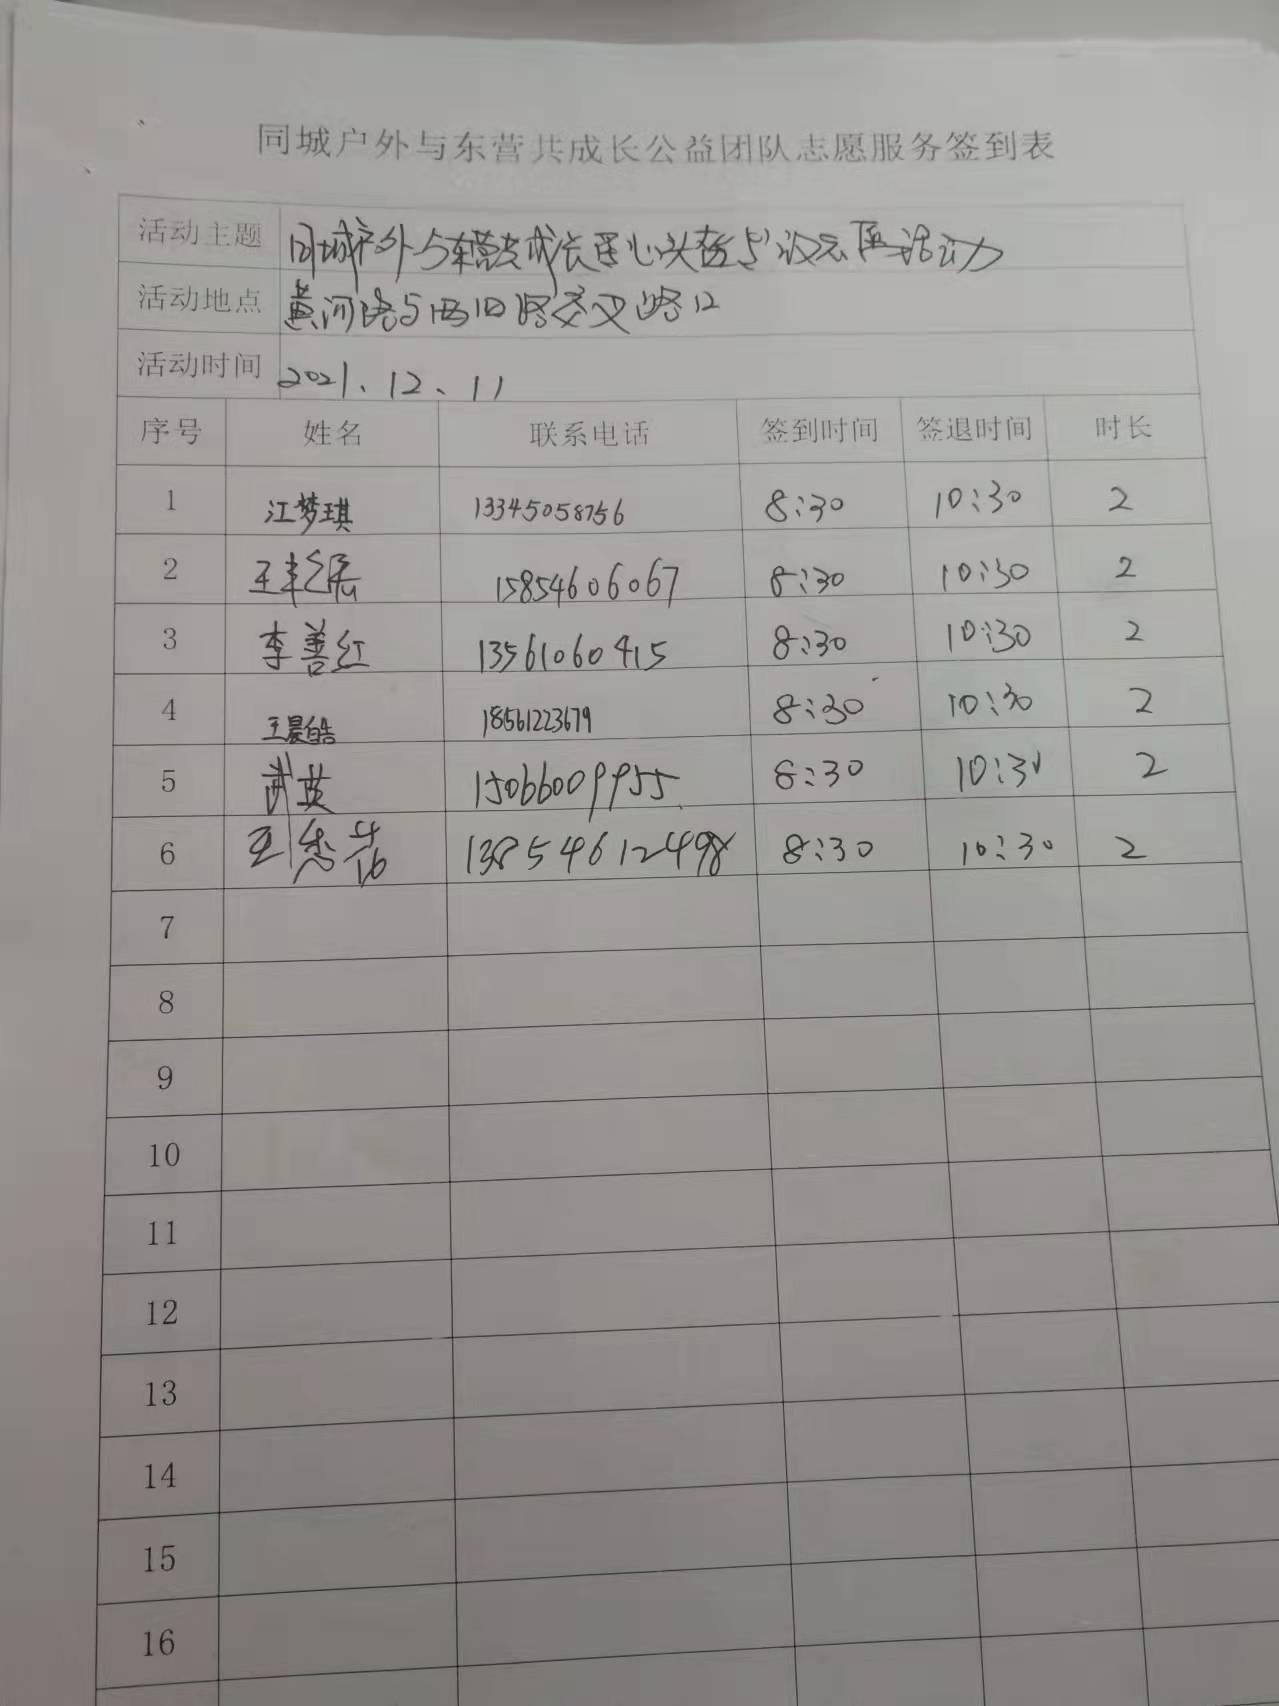 同城户外与东营共成长公益团队志愿服务签到表
活动主题 同城户外与东营共成长 活动
活动地点 黄河路与西四路交叉路口
活动时间 2021、12、11
序号 姓名 联系电话 签到时间 签退时间 时长
1 江梦琪 13345058756 8:30 10:30 2
2 王 15854606067 8:30 10:30 2
3 李善红 13561060415 8:30 10:30 2
4 王晨皓 18561223679 8:30 10:30 2
5 武英 15066009955 8:30 10:30 2
6 王 13854612498 8:30 10:30 2
7
8
9
10
11
12
13
14
15
16